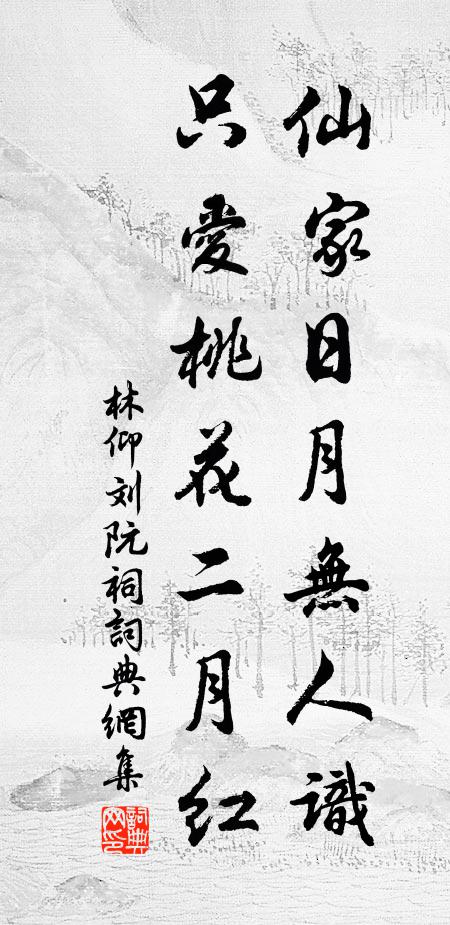 仙家日月無人識
只愛桃花二月红
林仰刘阮祠詞典網集
詞典
网印